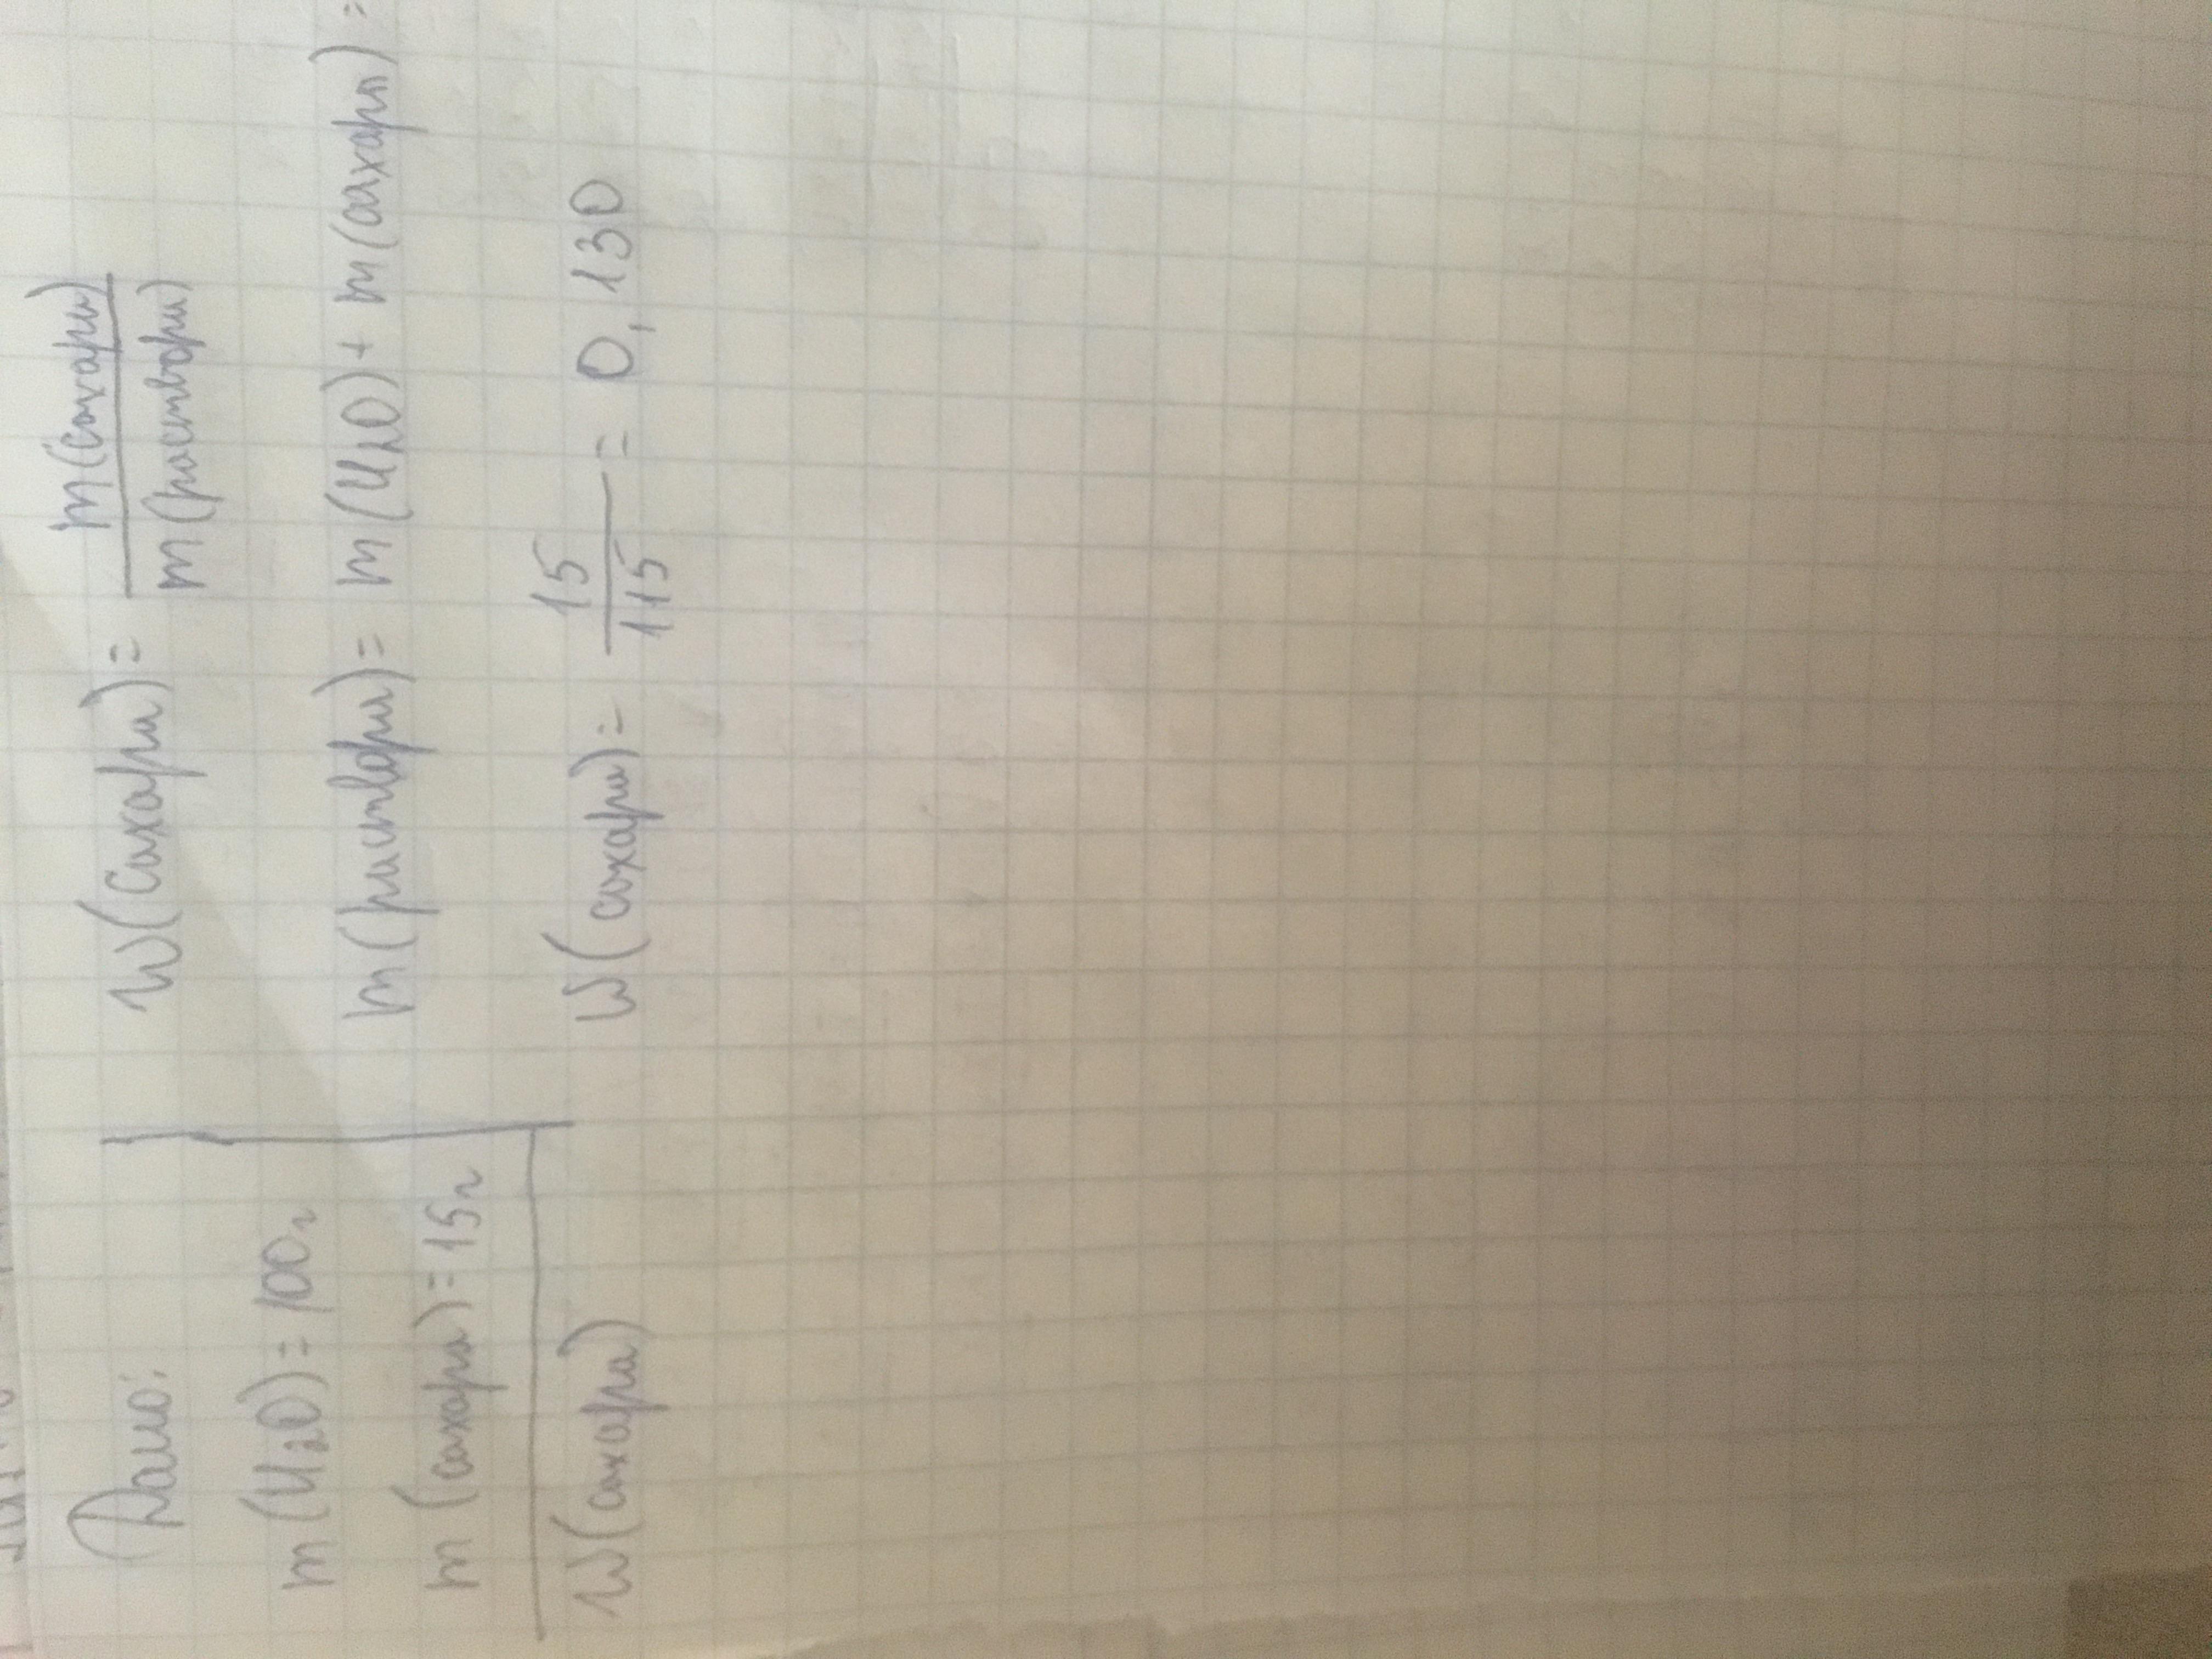 Дано:
m(H₂O) = 100г
m(сахара) = 15г
W(сахара)
W(Сахара) = m(сахара) / m(раствора)
m(раствора) = m(H₂O) + m(сахара) =
W(сахара) = 15 / 115 = 0,130